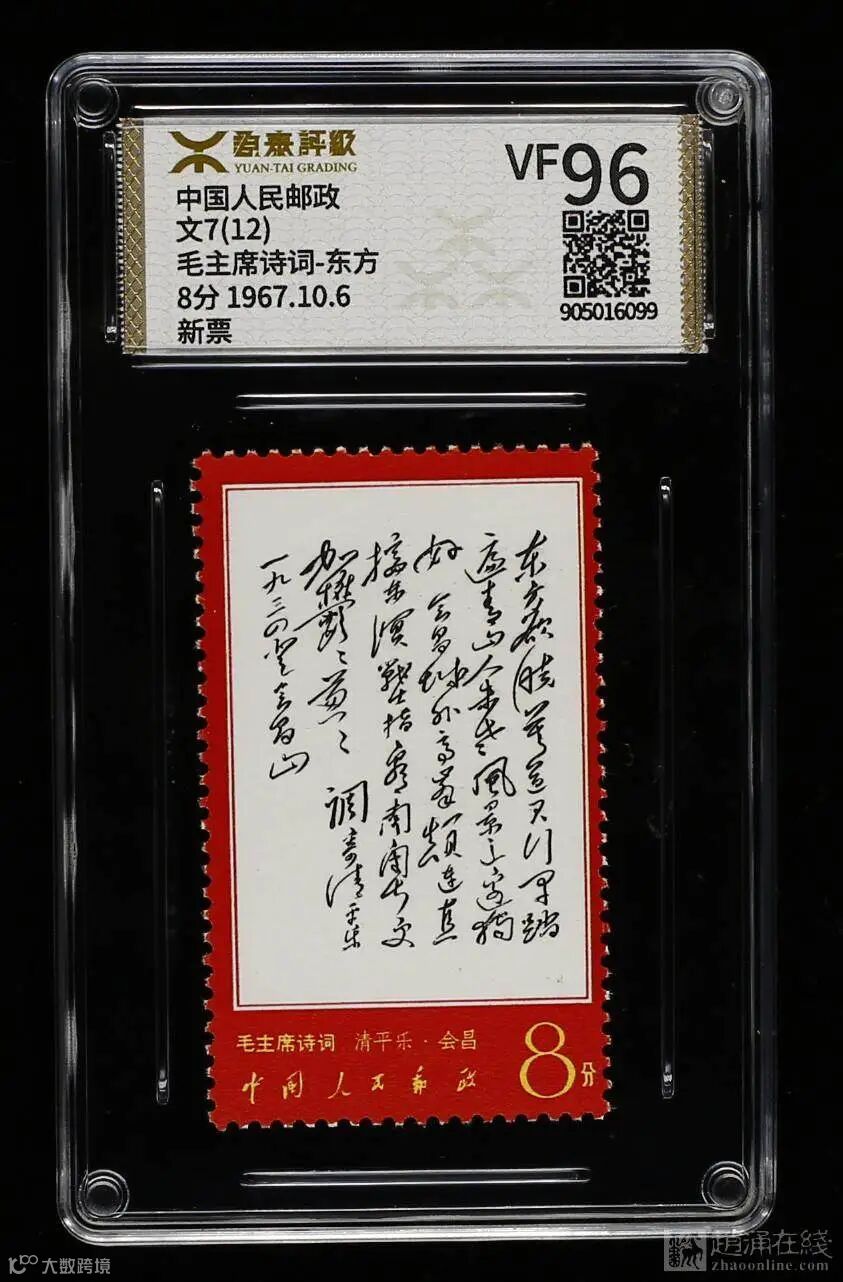 源泰評級
YUAN-TAI GRADING
VF96
中国人民邮政
文7(12)
毛主席诗词-东方
8分 1967.10.6
新票
905016099
东方欲晓莫道君行早踏
遍青山人未老風景这边独
好 会昌城外高峯颠连直
接东溟戰士指看南粤更
加欝〻葱〻 調寄清平乐
一九三四登会昌山
毛主席诗词 清平乐·会昌
中国人民邮政
8分
大数跨境
趙涌在线
zhaoonline.com